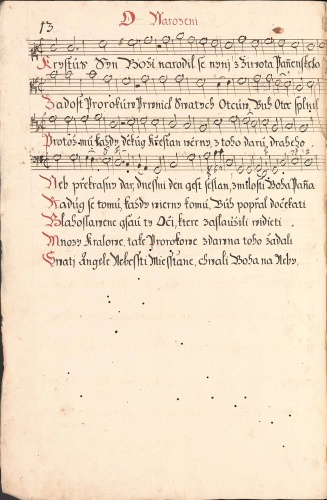 13
O Narozeni
Krystus Syn Boži narodil se nynj z života Panenskeho
Žadost Prorokuw Swatych Otcuw, Buh Otec splnil
Protož mu každy děkug Křestian wěrny, z toho daru drahého
Neb překrasny dar, dnessni den gest seslan, z milosti Boha Pana
Radug se tomu, každy wierny komu, Buh popřal dočekati
Blahoslawene gsau ty Oči, ktere zaslaužili widieti
Mnozy Kralowe, take Prorokowe zdarma toho žadali
Swatj Angele Nebesstj Miesstiane, chwali Boha na Neby.